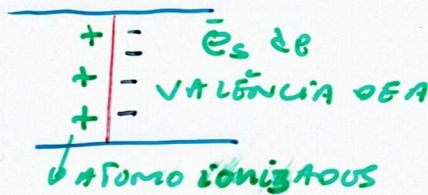 + - ēs de
+ - VALÊNCIA DE A
+ -
ÁTOMO IONIZADOS